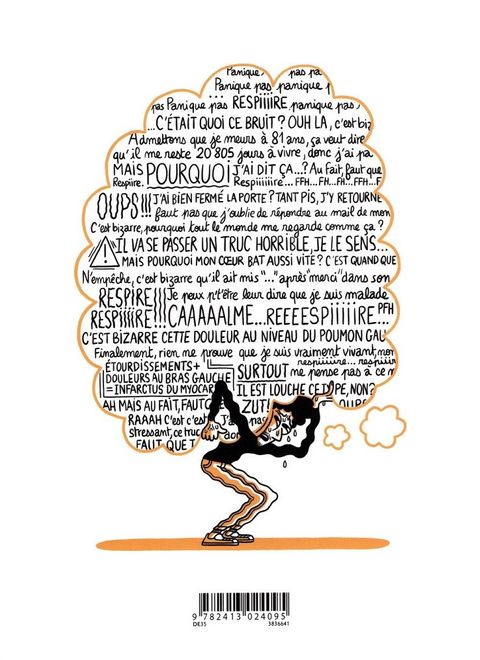 Panique, pas pa
Panique pas panique p
pas Panique pas RESPIIIIRE panique pas,
...C'ÉTAIT QUOI CE BRUIT ? OUH LA, c'est biz
Admettons que je meurs à 81 ans, ça veut dire
qu'il me reste 20 805 jours à vivre, donc j'ai pa
MAIS POURQUOI J'AI DIT ÇA...? Au fait, faut que
Respire. Respiiiiiire... FFH... FH... FFH... FFH
OUPS!!! J'AI BIEN FERMÉ LA PORTE ? TANT PIS, J'Y RETOURNE
faut pas que j'oublie de répondre au mail de mon
C'est bizarre, pourquoi tout le monde me regarde comme ça ?
IL VA SE PASSER UN TRUC HORRIBLE, JE LE SENS...
MAIS POURQUOI MON CŒUR BAT AUSSI VITE ? C'EST QUAND QUE
N'empêche, c'est bizarre qu'il ait mis "..." après "merci" dans son
RESPIRE!!! Je peux p't'être leur dire que je suis malade
RESPIIIIRE!!! CAAAAALME... REEEESPIIIIIRE PFH
C'EST BIZARRE CETTE DOULEUR AU NIVEAU DU POUMON GAU
Finalement, rien me prouve que je suis vraiment vivant, mon
respiiiiire... respiiiire
ÉTOURDISSEMENTS + DOULEURS AU BRAS GAUCHE = INFARCTUS DU MYOCAR
SURTOUT me pense pas à ce m
IL EST LOUCHE CE
PE, NON ?
AH MAIS AU FAIT, FAUT
ZUT!
OUPS
RAAAH c'est c
stressant, ce truc
FAUT QUE T
9 782413 024095
DE35 3836641